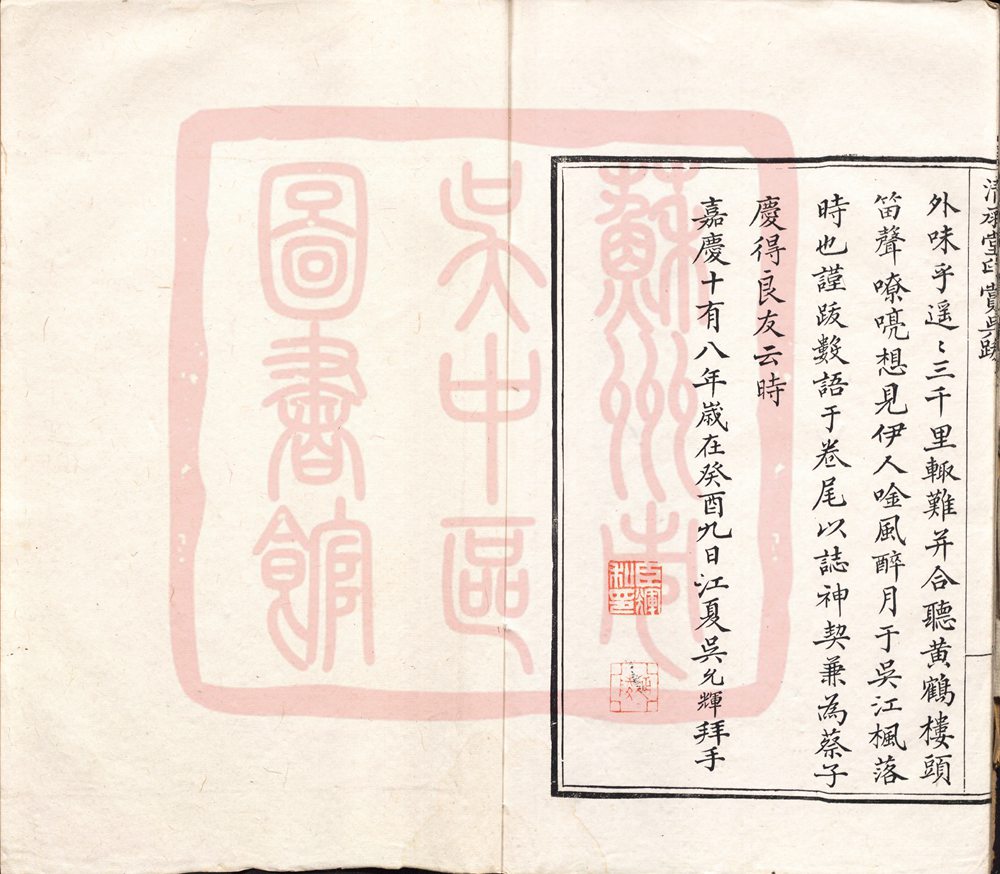 清承堂印賞典跋
外味乎遥〻三千里輙難并合聽黄鶴樓頭
笛聲嘹喨想見伊人唫風醉月于吳江楓落
時也謹跋數語于卷尾以誌神契兼為蔡子
慶得良友云時
嘉慶十有八年嵗在癸酉九日江夏吳允輝拜手
臣輝私印
蘇州市
吳中區
圖書館